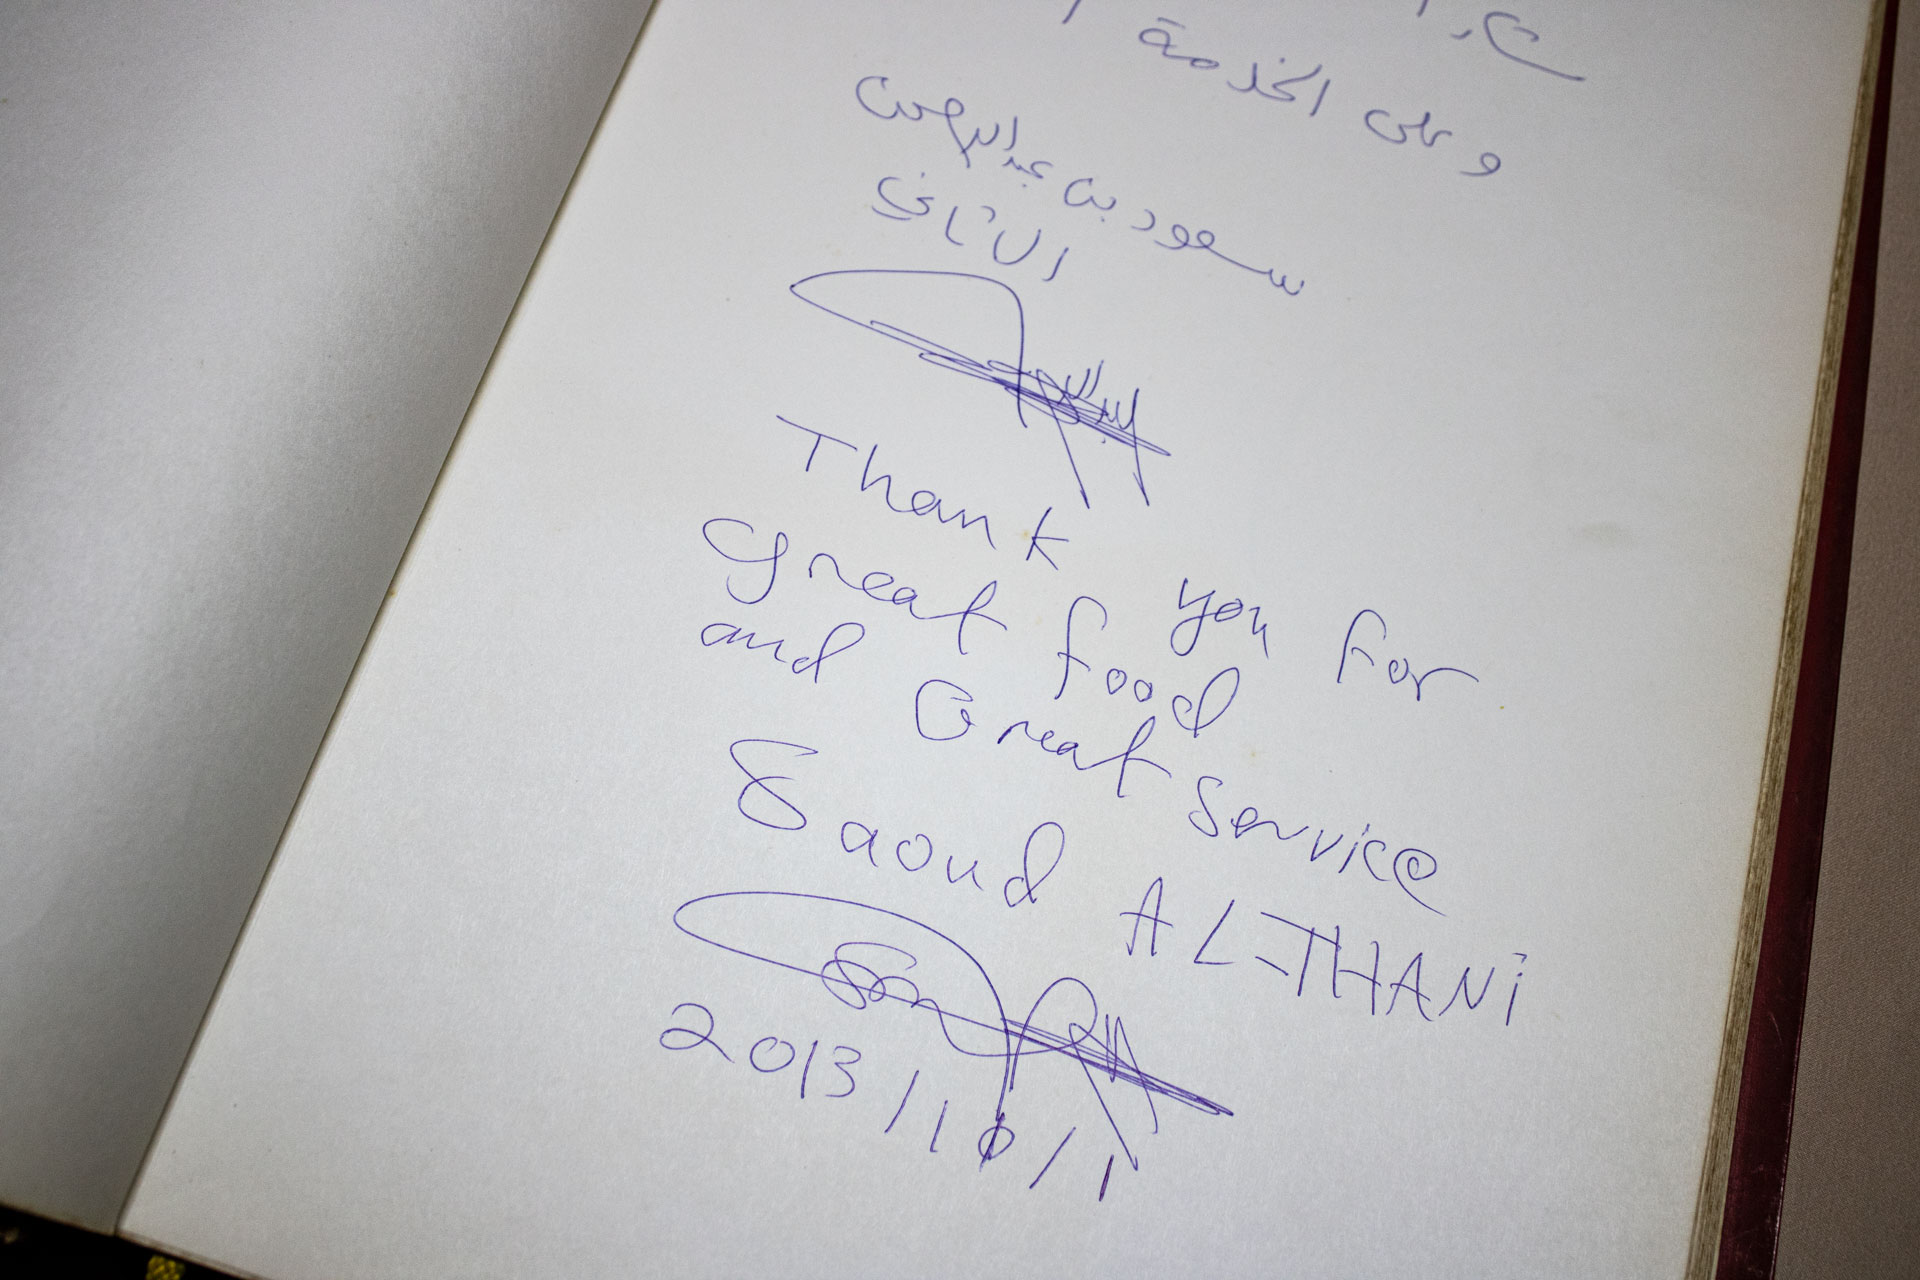 وعلى الخدمة
سعود بن عبدالرحمن
ال ثاني
Thank you for
great food
and Great Service
Saoud AL-THANi
2013/10/1